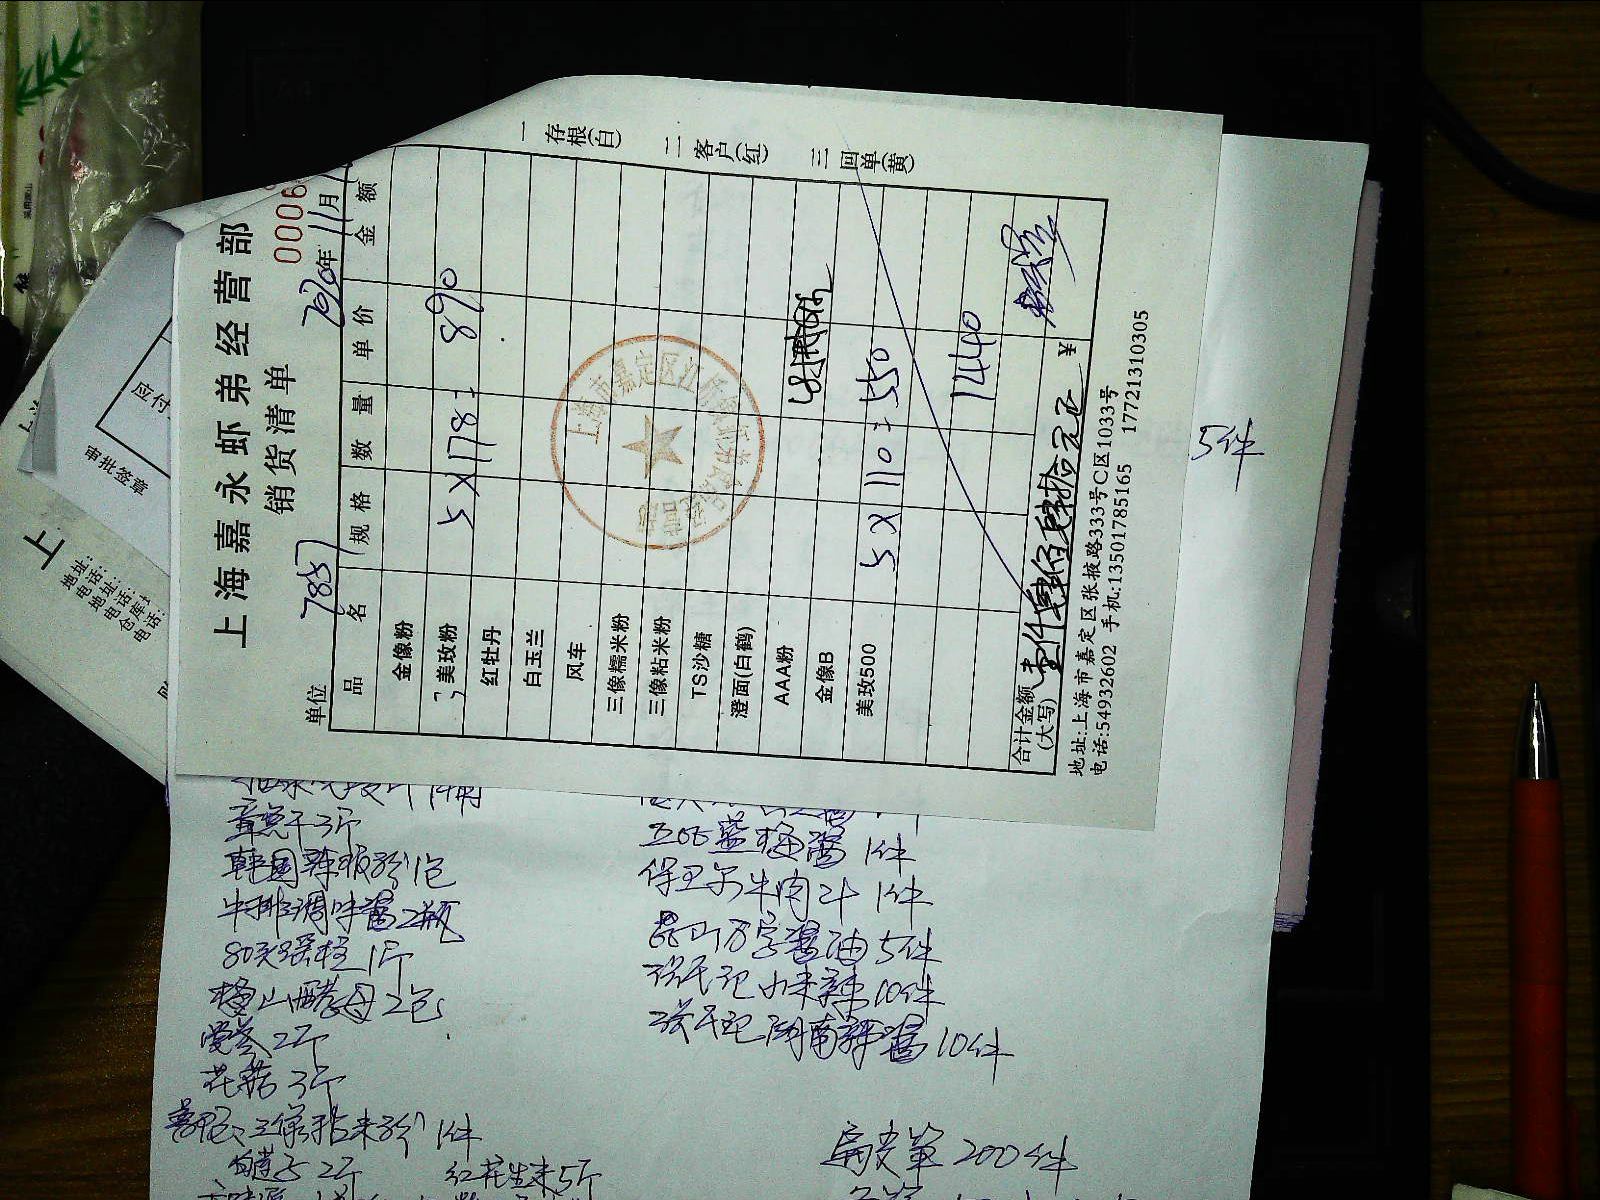 上海嘉永虾弟经营部
销货清单
0006
单位 7857 2020年11月
品名 规格 数量 单价 金额
金像粉
美玫粉 5×178=890
红牡丹
白玉兰
风车
三像糯米粉
三像粘米粉
TS沙糖
澄面(白鹤)
AAA粉
金像B
美玫500 5×110=550
1440
合计金额(大写) 壹仟肆佰肆拾元正 ¥
地址:上海市嘉定区张掖路333号C区1033号
电话:54932602 手机:13501785165 17721310305
一存根(白)
二客户(红)
三回单(黄)
上海市嘉定区江桥
应付
审批签章
上
地址:
电话:
地址:
电话:
仓库
电话:
5件
章鱼干3斤
韩国辣椒粉1包
牛排调味酱2瓶
80头瑶柱1斤
2包
2斤
花菇3斤
三像粘米粉1件
2斤 红花生米5斤
蓝梅酱1件
保卫尔牛肉汁1件
昆山万字酱油5件
张氏记小米辣10件
张氏记湖南辣酱10件
200件